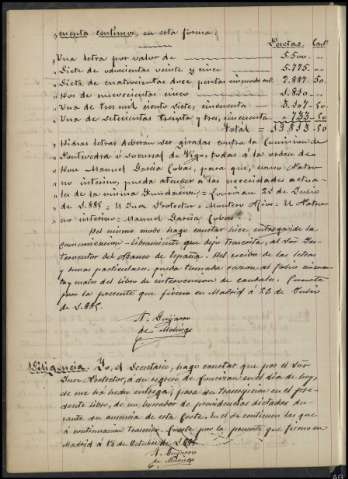 cuenta céntimos, en esta forma:
Pesetas. Cts.
" Una letra por valor de 5.500 "
" Siete de ochocientas veinte y cinco 5.775 "
" Siete de cuatrocientas doce pesetas cincuenta cnt. 2.887 50
" Dos de novecientas cinco
" Una de tres mil ciento siete, cincuenta 3.107 50
" Una de setecientas treinta y tres, cincuenta 733 50
Total =
" Dichas letras deberán ser giradas contra la Comisión de
Pontevedra ó sucursal de Vigo, todas á la orden de
Don Manuel García Cobas, para que, como Patro-
no interino, pueda atender á las necesidades actua-
les de la misma Fundación =
de 1.885 = El Juez Protector = Montero Ríos = El Patro-
no interino = Manuel García Cobas".
Del mismo modo hago constar hice entrega de la
comunicación - libramiento que dejo trascrita, al Sor. In-
terventor del Banco de España. Del recibo de las letras
y demas particulares, queda tomada razon al folio cincuen-
ta y nueve del libro de intervencion de caudales. Y consta
por la presente que firmo en Madrid á 28 de Julio
de 1.885.
A. Guijarro
de Moliga
Diligencia. Yo, el Secretario, hago constar que por el Sor.
Juez Protector, á su regreso de en el dia de hoy,
se me ha hecho entrega, para su transcripcion en el pre-
sente libro, de un borrador de providencias dictadas du-
rante su ausencia de esta Corte. En él se contienen las que
á continuacion traslado. Y consta por la presente que firmo en
Madrid á 15 de Octubre de 1.885
A. Guijarro
de Moliga